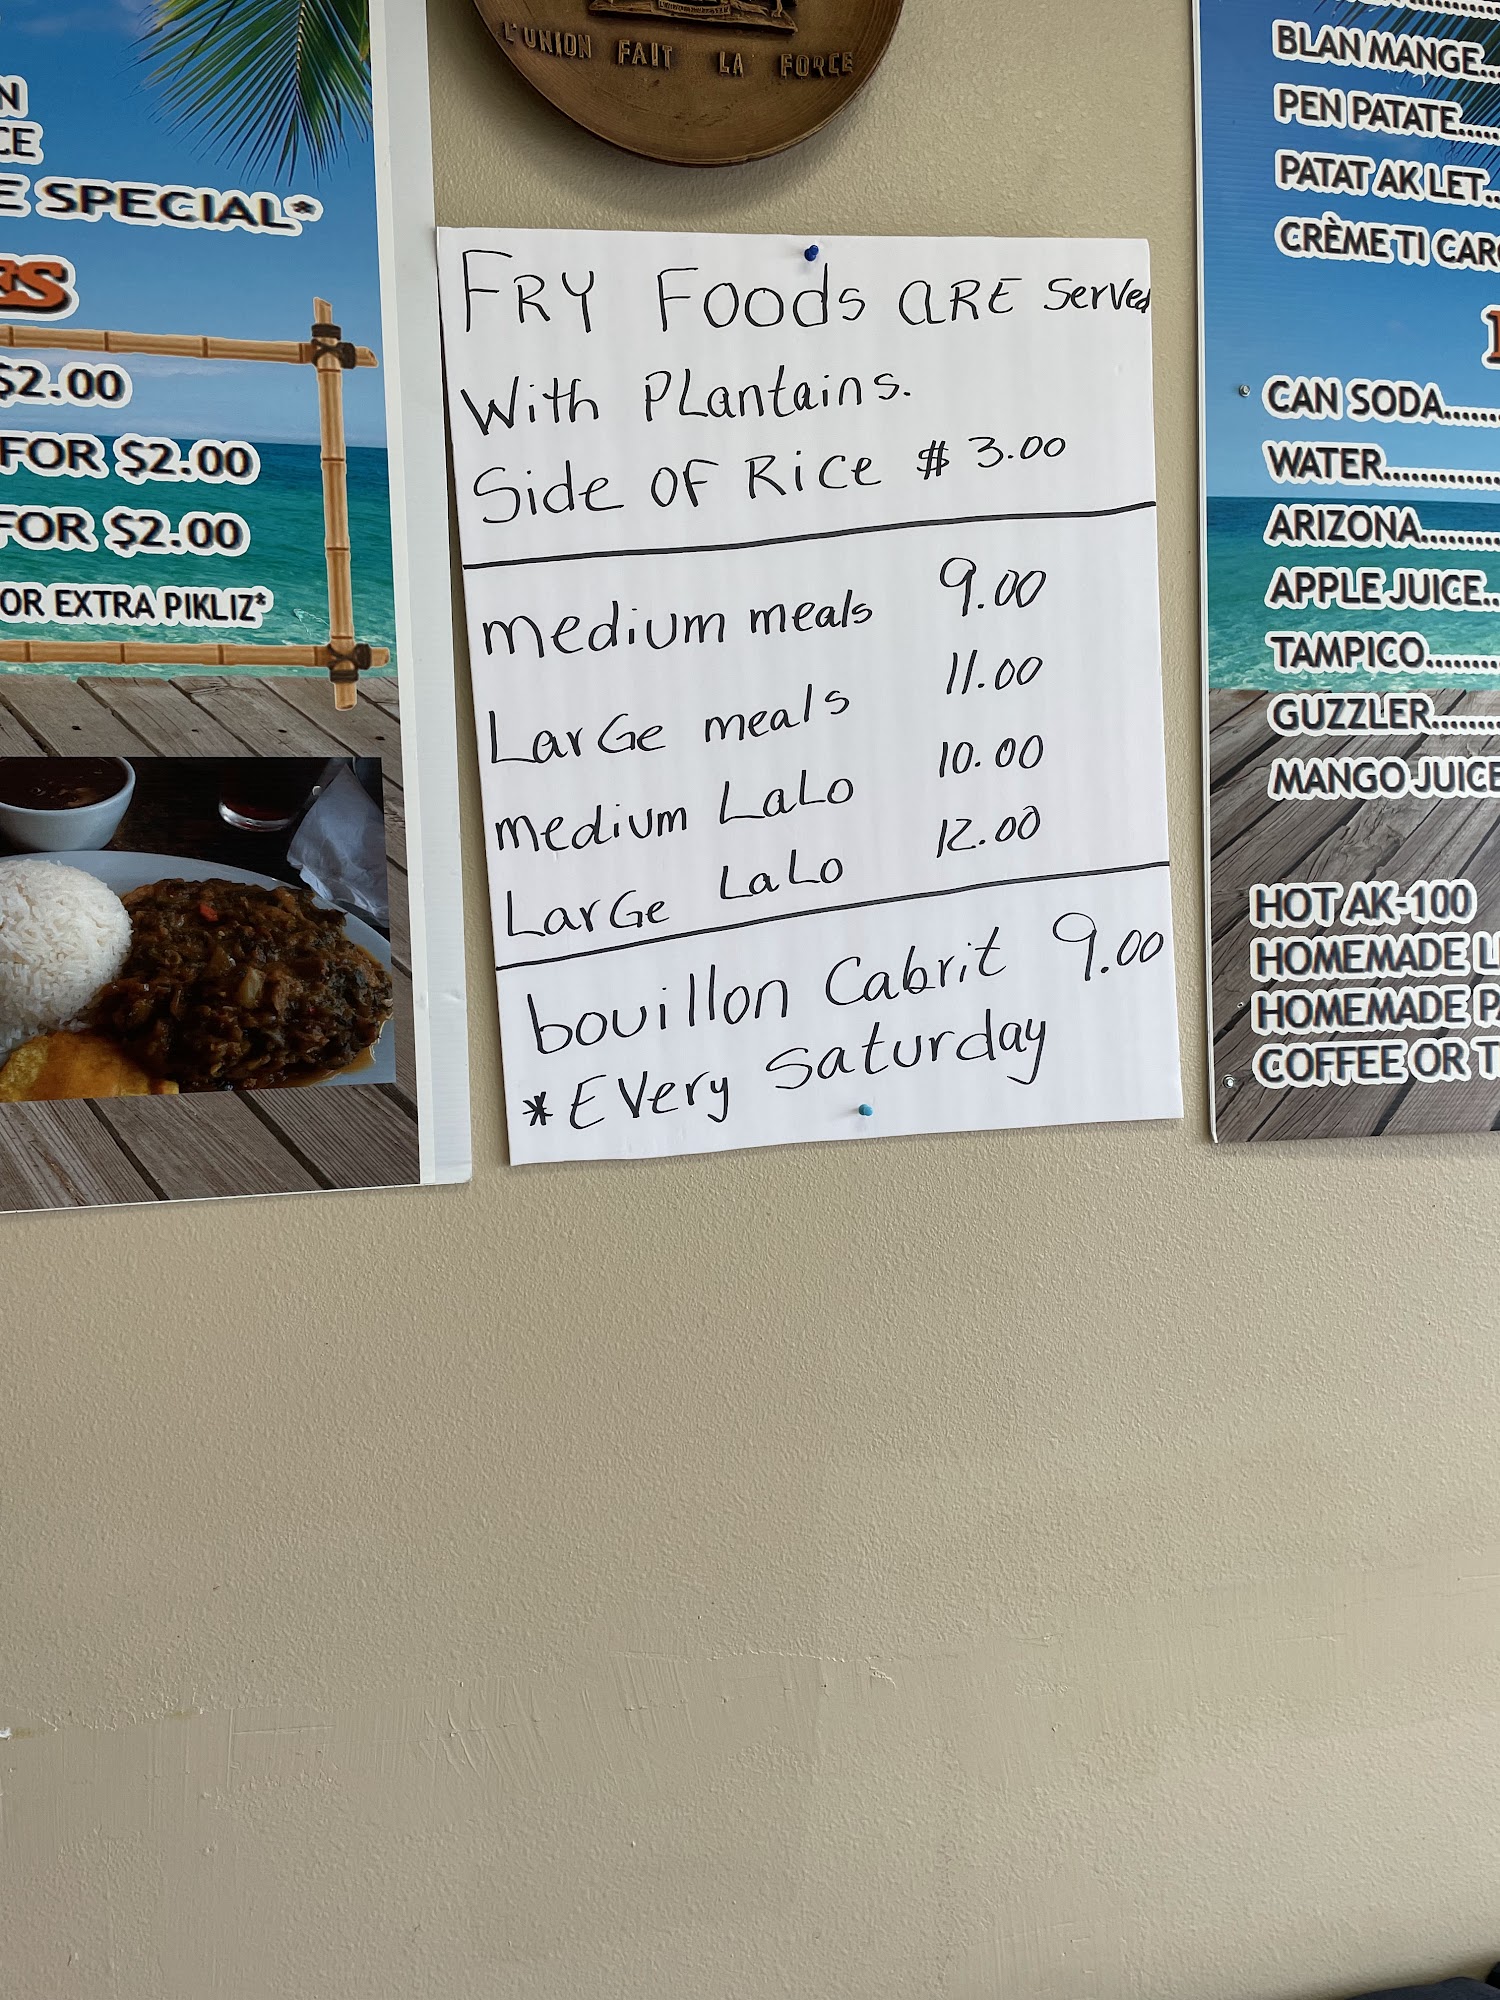 L'UNION FAIT LA FORCE
SPECIAL*
$2.00
FOR $2.00
FOR $2.00
OR EXTRA PIKLIZ*
FRY Foods ARE Served
With Plantains.
Side OF Rice $ 3.00
medium meals 9.00
LarGe meals 11.00
medium LaLo 10.00
LarGe LaLo 12.00
bouillon Cabrit 9.00
*EVery Saturday
BLAN MANGE...
PEN PATATE.....
PATAT AK LET...
CRÈME TI
CAN SODA.......
WATER............
ARIZONA.........
APPLE JUICE..
TAMPICO........
GUZZLER........
MANGO JUICE
HOT AK-100
HOMEMADE
HOMEMADE
COFFEE OR